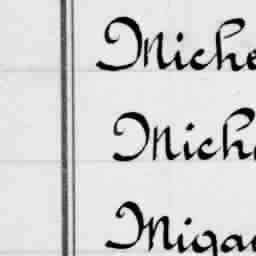 Miche
Micha
Migae